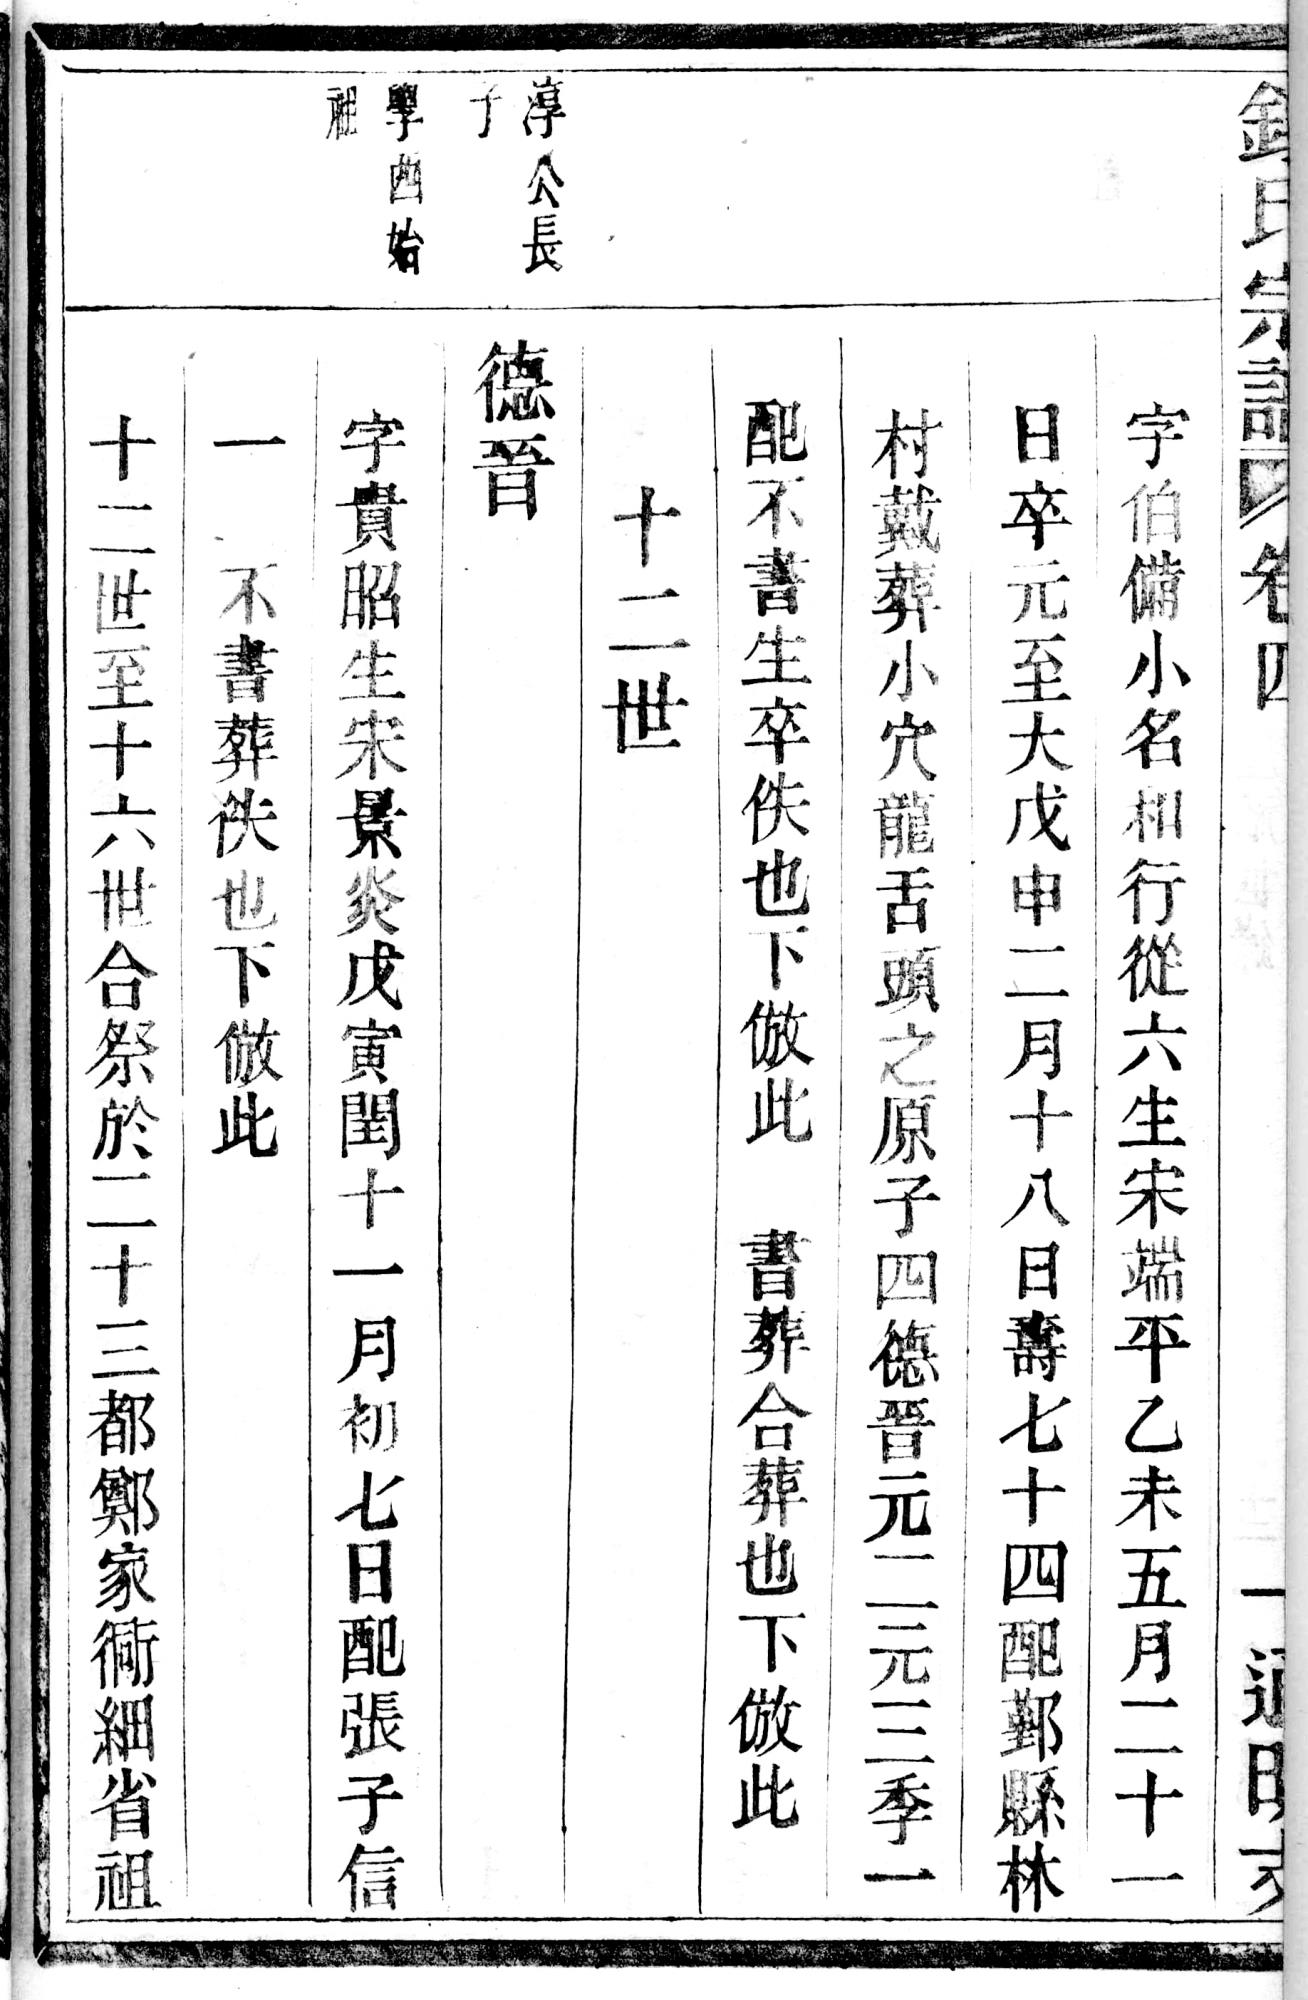 氏宗譜 卷四 一
字伯備小名和行從六生宋端平乙未五月二十一
日卒元至大戊申二月十八日壽七十四配鄞縣林
村戴葬小穴龍舌頭之原子四德晉元二元三季一
配不書生卒佚也下倣此 書葬合葬也下倣此
十二世
淳公長
子
德晉
學西始
祖
字貴昭生宋景炎戊寅閏十一月初七日配張子信
一 不書葬佚也下倣此
十二世至十六世合祭於二十三都鄭家衕細省祖